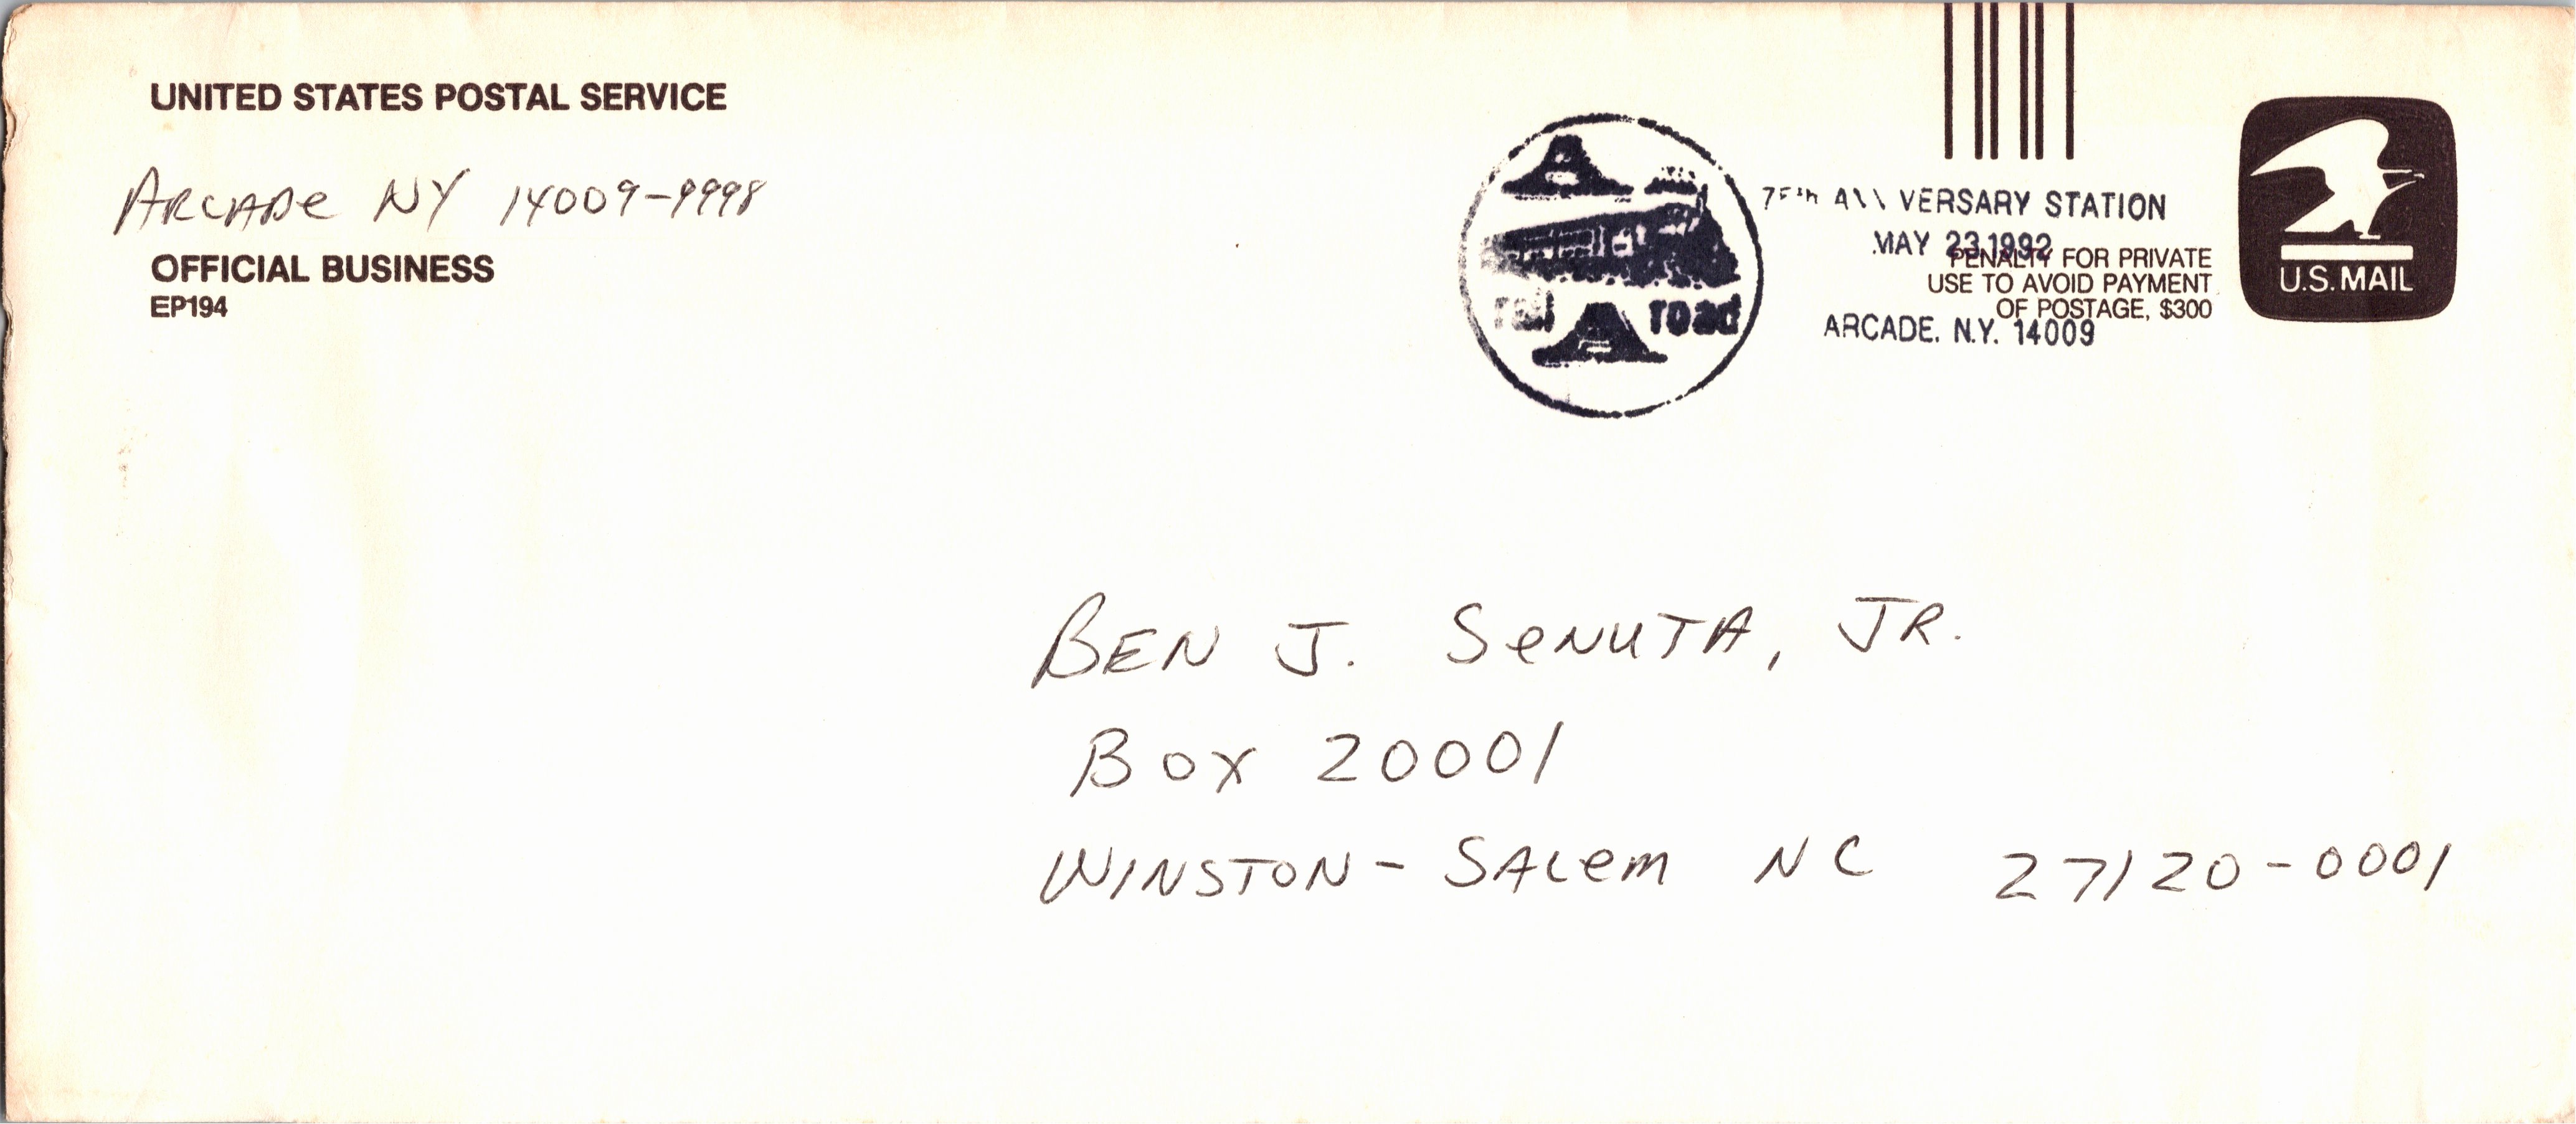 UNITED STATES POSTAL SERVICE
ARCADE NY 14009-9998
OFFICIAL BUSINESS
EP194
rail road
VERSARY STATION
MAY 23 1992
ARCADE. N.Y. 14009
PENALTY FOR PRIVATE
USE TO AVOID PAYMENT
OF POSTAGE, $300
U.S. MAIL
BEN J. SENUTA, JR.
BOX 20001
WINSTON-SALEM NC 27120-0001